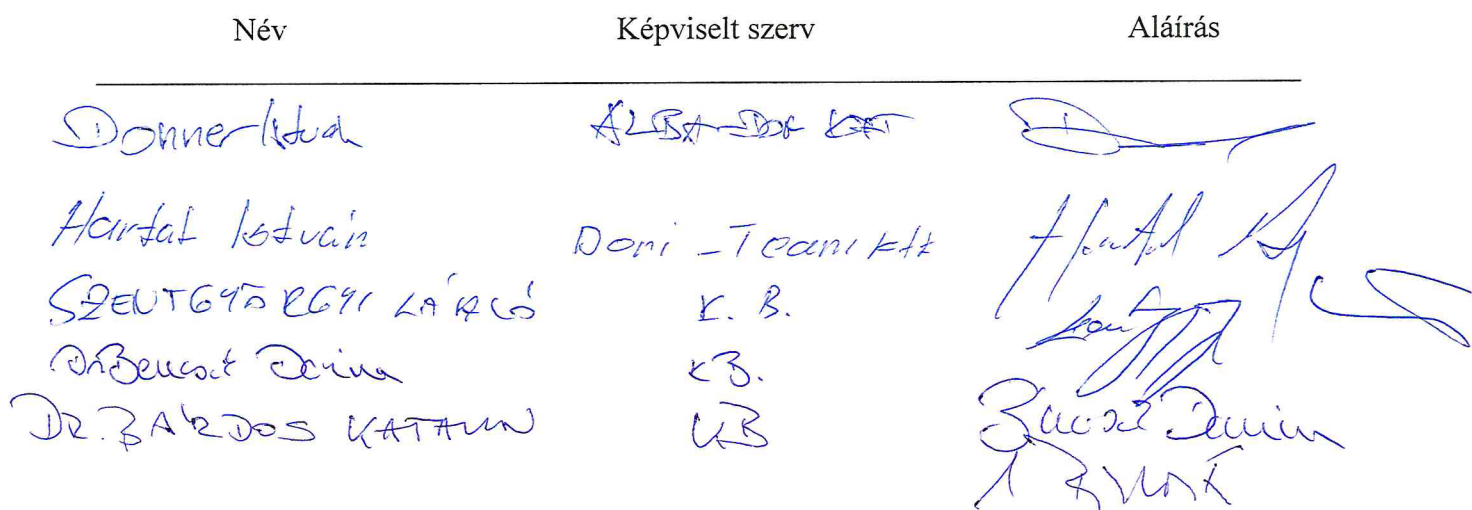 Név Képviselt szerv Aláírás
Donner István ALBA-DOR KFT
Hartal István Doni-Team Kft
SZENTGYÖRGYI LÁSZLÓ K. B.
Dr. Bencsik Darina KB.
DR. BÁRDOS KATALIN KB